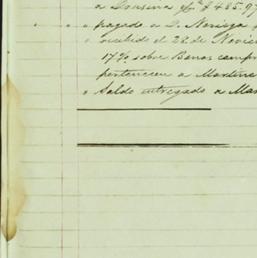 a Drusina y Ca $485.97
" pagado a D. Noriega
" recibido el 28 de Novie
17% sobre Bonos comp
pertenecen a Martine
" Saldo entregado a Ma